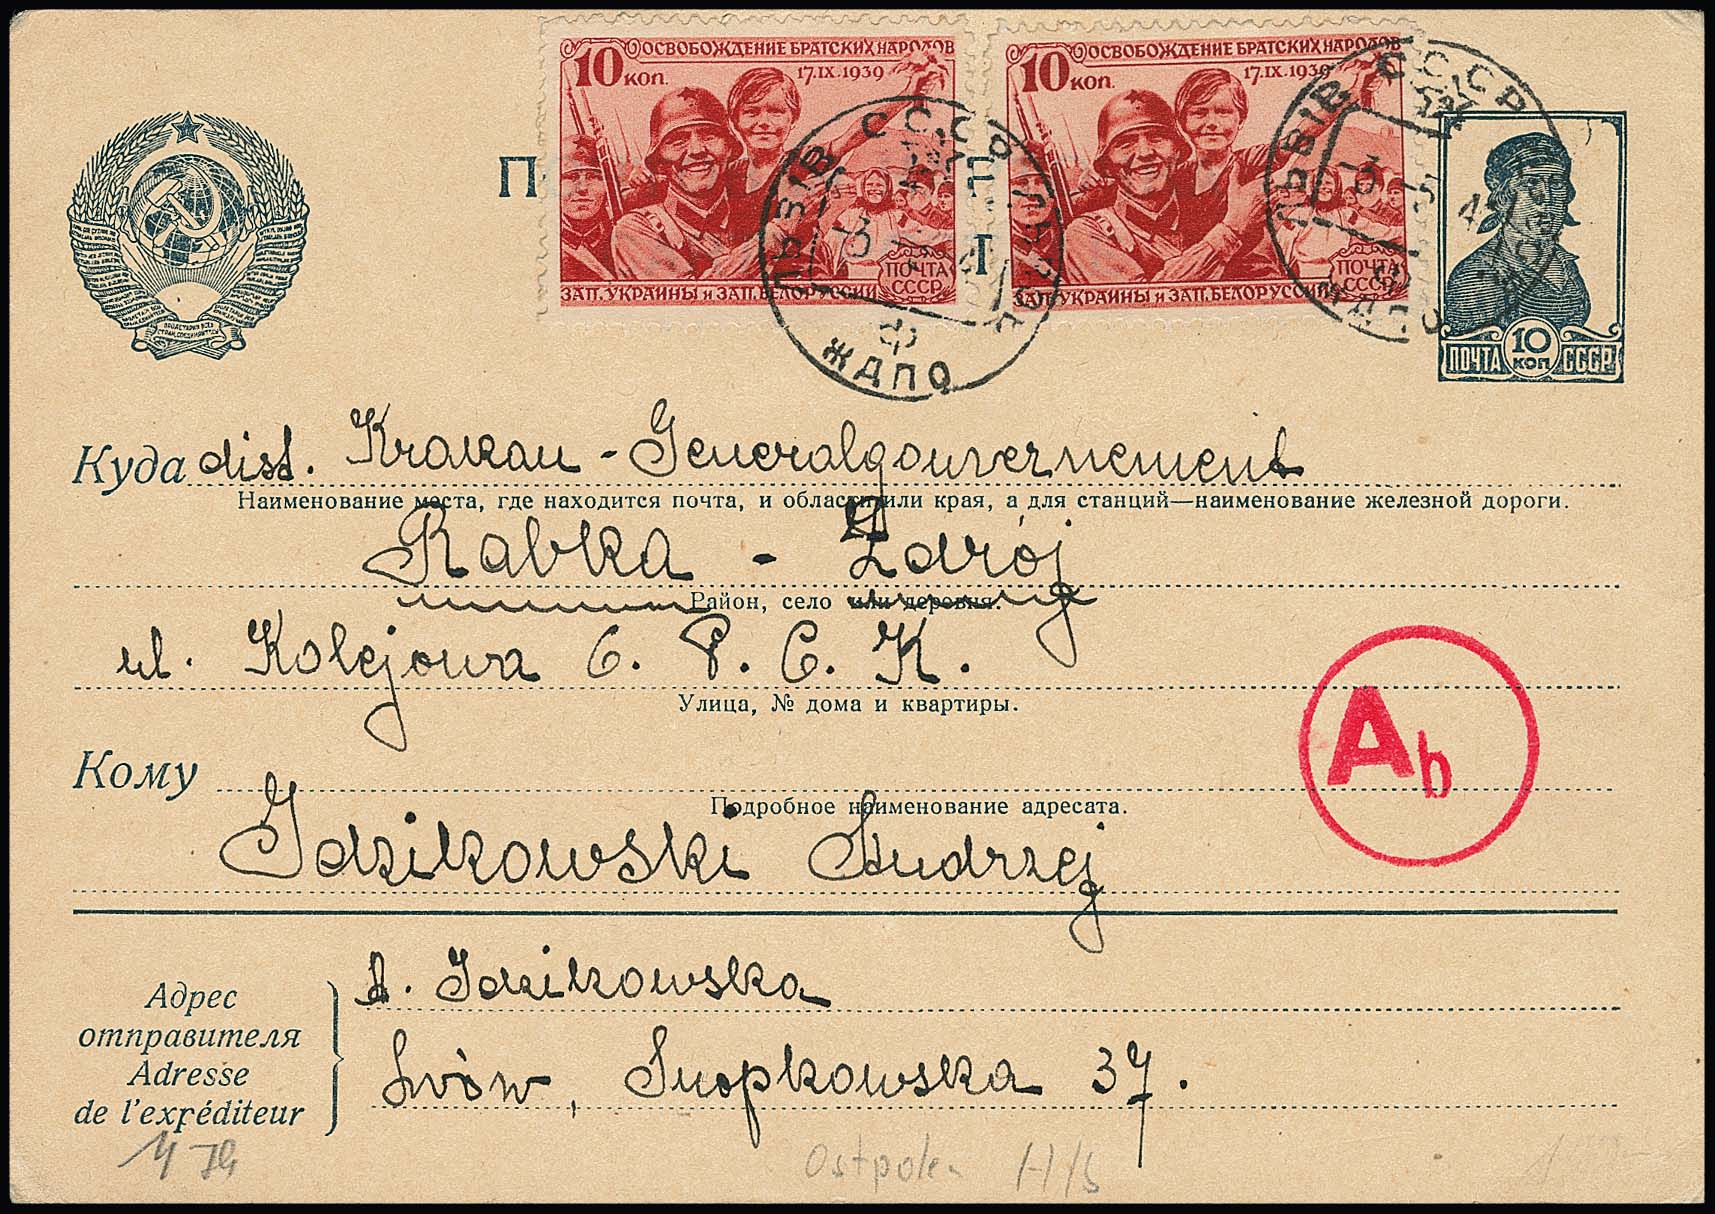 10 КОП. ОСВОБОЖДЕНИЕ БРАТСКИХ НАРОДОВ
17.IX.1939
ПОЧТА
СССР
ЗАП. УКРАИНЫ И ЗАП. БЕЛОРУССИИ
10 КОП. ОСВОБОЖДЕНИЕ БРАТСКИХ НАРОДОВ
17.IX.1939
ПОЧТА
СССР
ЗАП. УКРАИНЫ И ЗАП. БЕЛОРУССИИ
ПОЧТА 10 КОП СССР
П
ЛЬВІВ СССР ЛЬВОВ
ЖДПО
ЛЬВІВ СССР
Куда dist. Krakau - Generalgouvernement
Наименование места, где находится почта, и области или края, а для станций—наименование железной дороги.
Rabka - Zdrój
Район, село или деревня.
ul. Kolejowa 6. P. C. K.
Улица, № дома и квартиры.
Кому
Подробное наименование адресата.
Idzikowski Andrzej
Ab
Адрес
отправителя
Adresse
de l'expéditeur
A. Idzikowska
Lwów, Snopkowska 37.
Ostpolen H/S